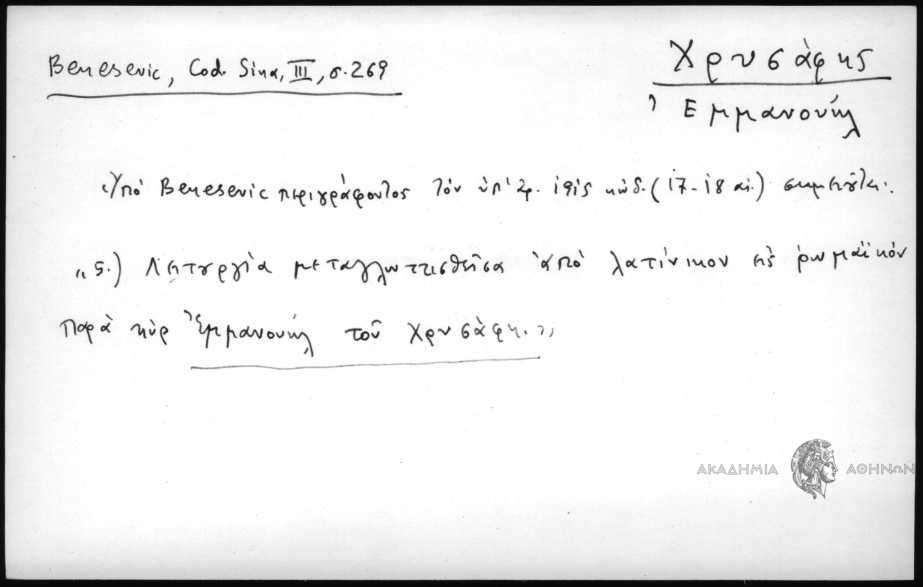 Benesevic, Cod. Sina, III, σ. 269
Χρυσάφης
Ἐμμανουήλ
Ὑπό Benesevic περιγράφοντος τόν ὑπ' ἀρ. 1915 κώδ. (17-18 αἰ.) σημειοῦται:
"5.) Λειτουργία μεταγλωττισθεῖσα ἀπό λατίνικον εἰς ρωμαϊκόν
παρὰ κύρ Ἐμμανουήλ τοῦ Χρυσάφη."
ΑΚΑΔΗΜΙΑ ΑΘΗΝΩΝ